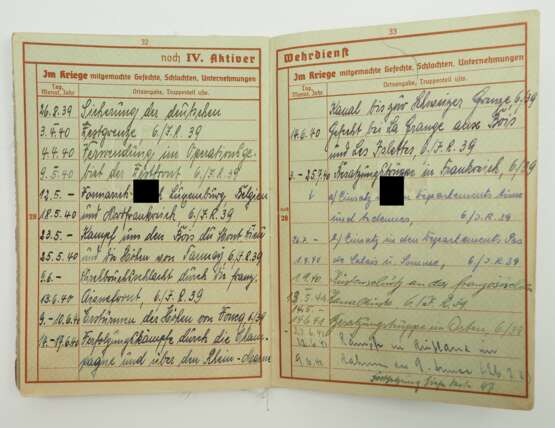 32
noch IV. Aktiver
Im Kriege mitgemachte Gefechte, Schlachten, Unternehmungen
Tag, Monat, Jahr
Ortsangabe, Truppenteil usw.
26.8.39 Sicherung der deutschen
3.4.40 Westgrenze 6/I.R.39
4.4.40 Verwendung im Operationsge-
9.5.40 biet der Westfront 6/I.R.39
12.5. – Vormarsch Luxemburg, Belgien
18.5.40 und Nordfrankreich 6/I.R.39
28
23.5. – Kampf um den Bois du Mont Dieu
25.5.40 und die Höhen von Tannay 6/I.R.39
durch die franz.
13.6.40 Aisnefront, 6/I.R.39
9.-10.6.40 Erstürmen der Höhen von 6/39
-19.6.40 Verfolgungskämpfe durch die Cham-
pagne und über den Rhein-Marne
33
Wehrdienst
Im Kriege mitgemachte Gefechte, Schlachten, Unternehmungen
Tag, Monat, Jahr
Ortsangabe, Truppenteil usw.
Kanal bis zur Schweizer Grenze, 6/39
14.6.40 Gefecht bei La Grange aux Bois
und Les Islettes, 6/I.R.39
3.-25.7.40 Besatzungstruppe in Frankreich, 6/39
a) Einsatz Departements Aisne
und Ardennes, 6/I.R.39
28
b) Einsatz in den Departements Pas
1.9.40 de Calais u. Somme, 6/I.R.39
1.9.40 Küstenschutz an der französischen
13.5.41 Kanalküste 6/I.R.39
Besatzungstruppe im Osten, 6/39
in Rußland im
Rahmen der 9. Armee